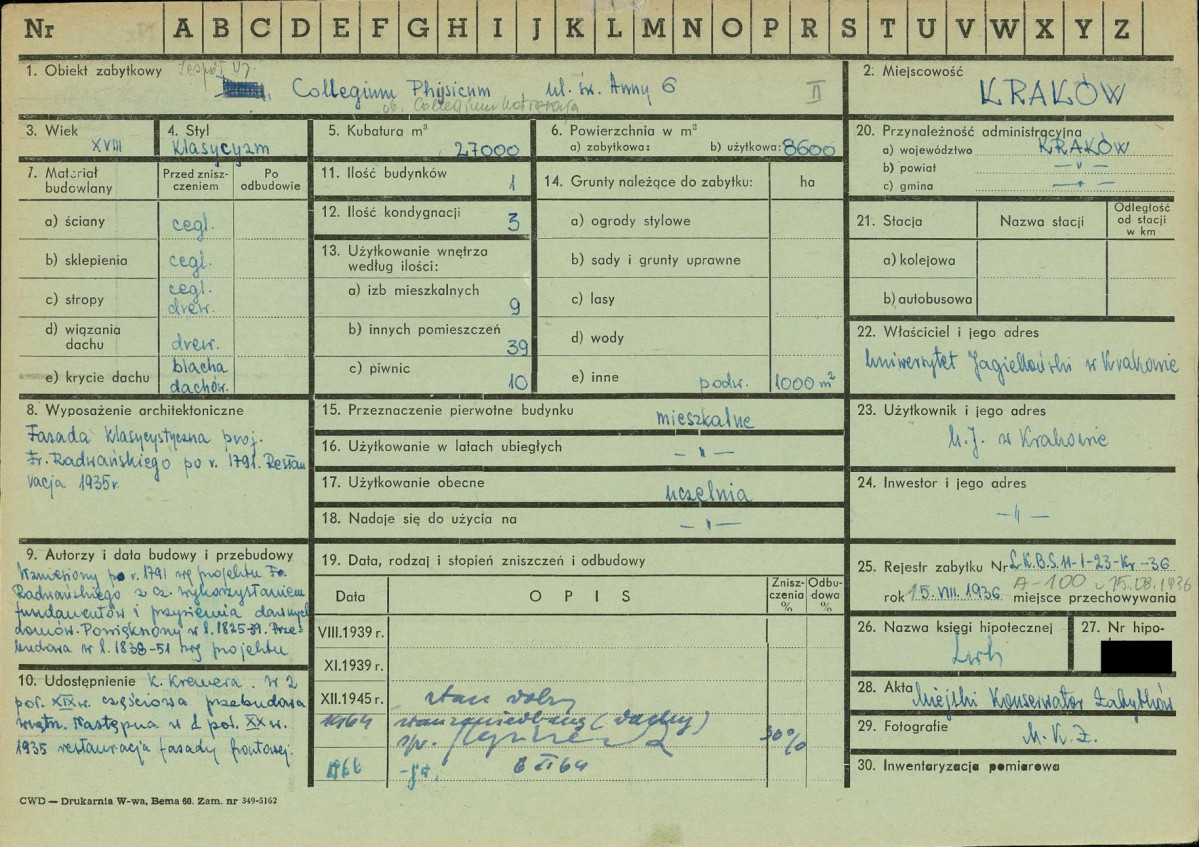 Nr A B C D E F G H I J K L M N O P R S T U V W X Y Z
1. Obiekt zabytkowy Zespół UJ.
Collegium Physicum, ul. św. Anny 6 II
ob. Collegium Kołłątaja
2. Miejscowość
KRAKÓW
3. Wiek
XVIII
4. Styl
klasycyzm
5. Kubatura m³
27000
6. Powierzchnia w m²
a) zabytkowa: b) użytkowa: 8600
20. Przynależność administracyjna
a) województwo KRAKÓW
b) powiat —„—
c) gmina —„—
7. Materiał budowlany
Przed zniszczeniem
Po odbudowie
a) ściany cegl.
b) sklepienia cegl.
c) stropy cegl.
drew.
d) wiązania dachu drew.
e) krycie dachu blacha
dachów.
11. Ilość budynków 1
12. Ilość kondygnacji 3
13. Użytkowanie wnętrza
według ilości:
a) izb mieszkalnych 9
b) innych pomieszczeń 39
c) piwnic 10
14. Grunty należące do zabytku: ha
a) ogrody stylowe
b) sady i grunty uprawne
c) lasy
d) wody
e) inne podw. 1000 m²
21. Stacja Nazwa stacji Odległość od stacji w km
a) kolejowa
b) autobusowa
22. Właściciel i jego adres
Uniwersytet Jagielloński w Krakowie
8. Wyposażenie architektoniczne
Fasada klasycystyczna proj.
Fr. Radwańskiego po r. 1791. Restau
racja 1935 r.
15. Przeznaczenie pierwotne budynku mieszkalne
16. Użytkowanie w latach ubiegłych —„—
17. Użytkowanie obecne uczelnia
18. Nadaje się do użycia na —„—
23. Użytkownik i jego adres
U.J. w Krakowie
24. Inwestor i jego adres
—„—
9. Autorzy i data budowy i przebudowy
Wzniesiony po r. 1791 wg projektu Fr.
Radwańskiego z cz. wykorzystaniem
fundamentów i przyziemia dawnych
domów. Powiększony w l. 1825-39. Prze-
budowa w l. 1838-51 wg projektu
10. Udostępnienie K. Kremera. W 2
poł. XIX w. częściowa przebudowa
wnętrz. Następna w 1 poł. XX w.
1935 restauracja fasady frontowej.
19. Data, rodzaj i stopień zniszczeń i odbudowy
Data OPIS Zniszczenia % Odbudowa %
VIII.1939 r.
XI.1939 r.
XII.1945 r. stan dobry
1964 stan zaniedbany (dachy) 30%
spr.
1966 8 II 64
25. Rejestr zabytku Nr L.K.B.S.II-1-23-Kr.-36
A-100 z 15.08.1936
rok 15.VIII.1936 miejsce przechowywania
26. Nazwa księgi hipotecznej
27. Nr hipo-
28. Akta Miejski Konserwator Zabytków
29. Fotografie M.K.Z.
30. Inwentaryzacja pomiarowa
CWD — Drukarnia W-wa, Bema 60. Zam. nr 349-5162